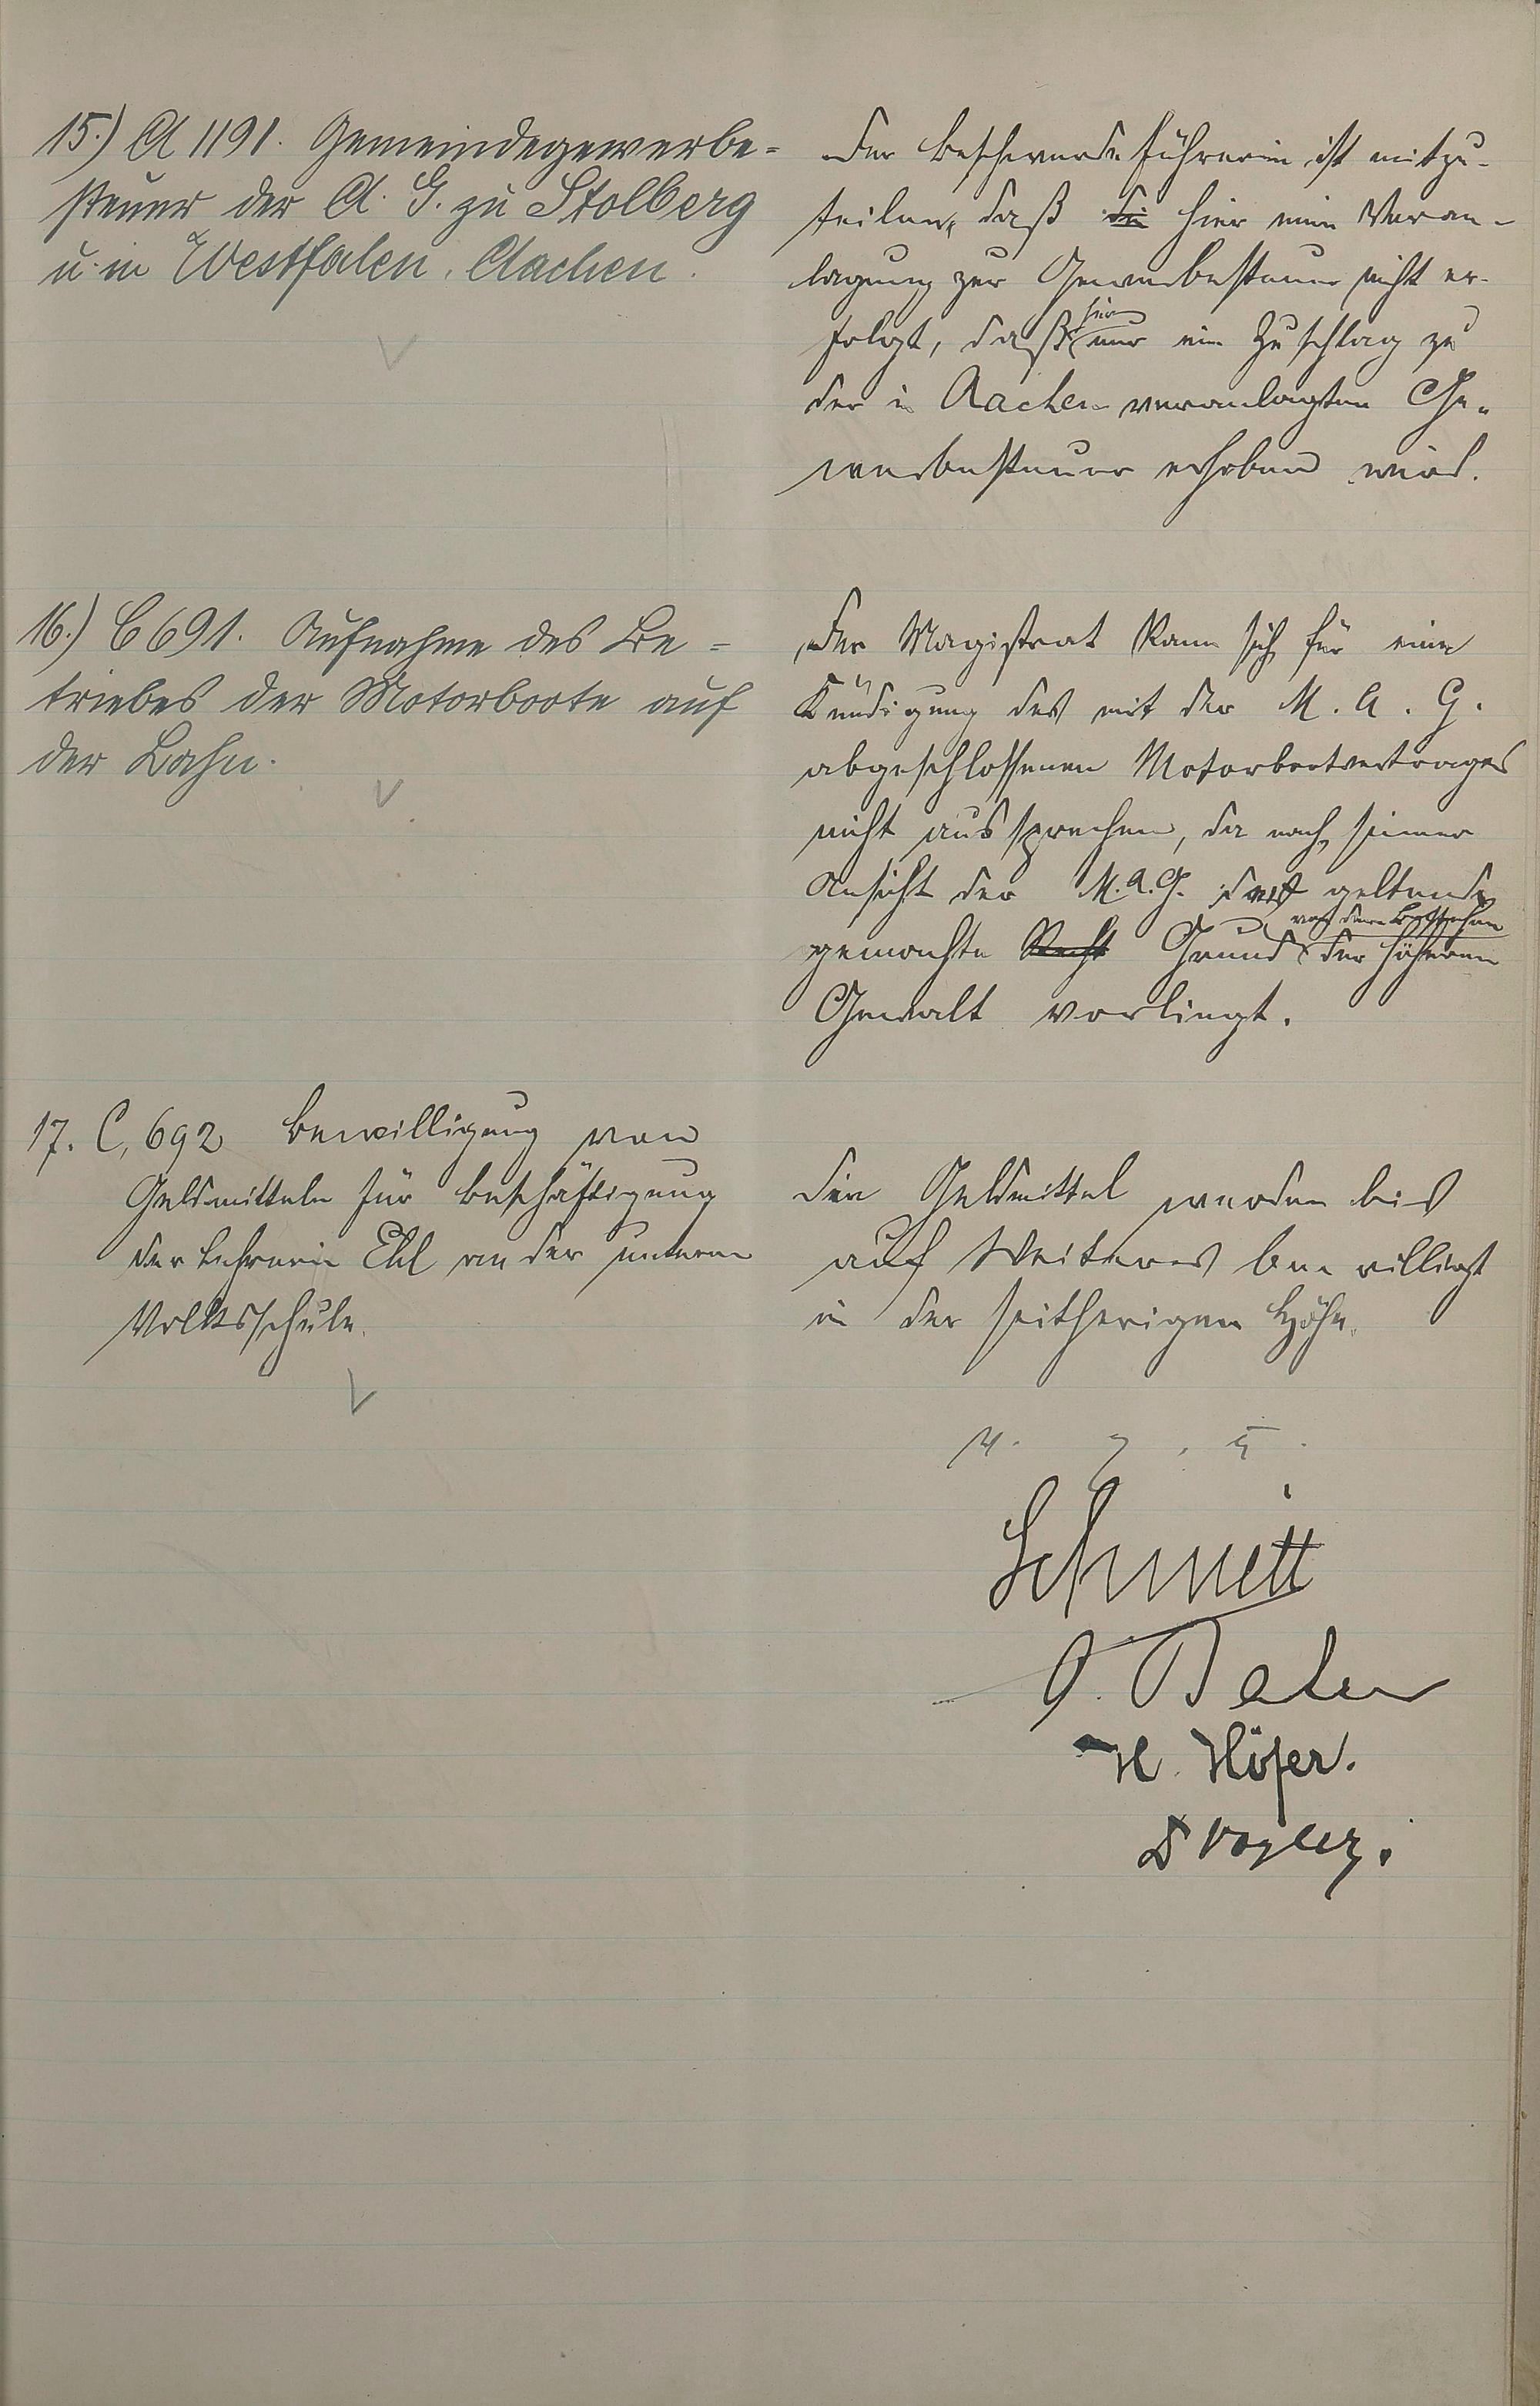 15.) A 1191. Gemeindegewerbe=
steuer der A. G. zu Stolberg
u. in Westfalen, Aachen.
Der Beschwerdeführerin ist mitzu-
teilen, daß die hier eine Veran-
lagung zur Gewerbesteuer nicht er-
folgt, daß hier nur ein Zuschlag zu
der in Aachen veranlagten Ge-
werbesteuer erhoben wird.
16.) C 691. Aufnahme des Be=
triebes der Motorboote auf
der Lahn.
Der Magistrat kann sich für eine
Kündigung des mit der M. A. G.
abgeschlossenen Motorbootvertrages
nicht aussprechen, da nach seiner
Ansicht der M. A. G. geltend
gemachte Recht Grund von dem Bestehen der höheren
Gewalt vorliegt.
17. C, 692 Bewilligung von
Geldmitteln für Beschäftigung
der Lehrerin Ehl an der unteren
Volksschule.
Die Geldmittel werden bis
auf Weiteres bewilligt
in der seitherigen Höhe.
v. g. u.
Schmitt
H. Höfer.
Vogler.